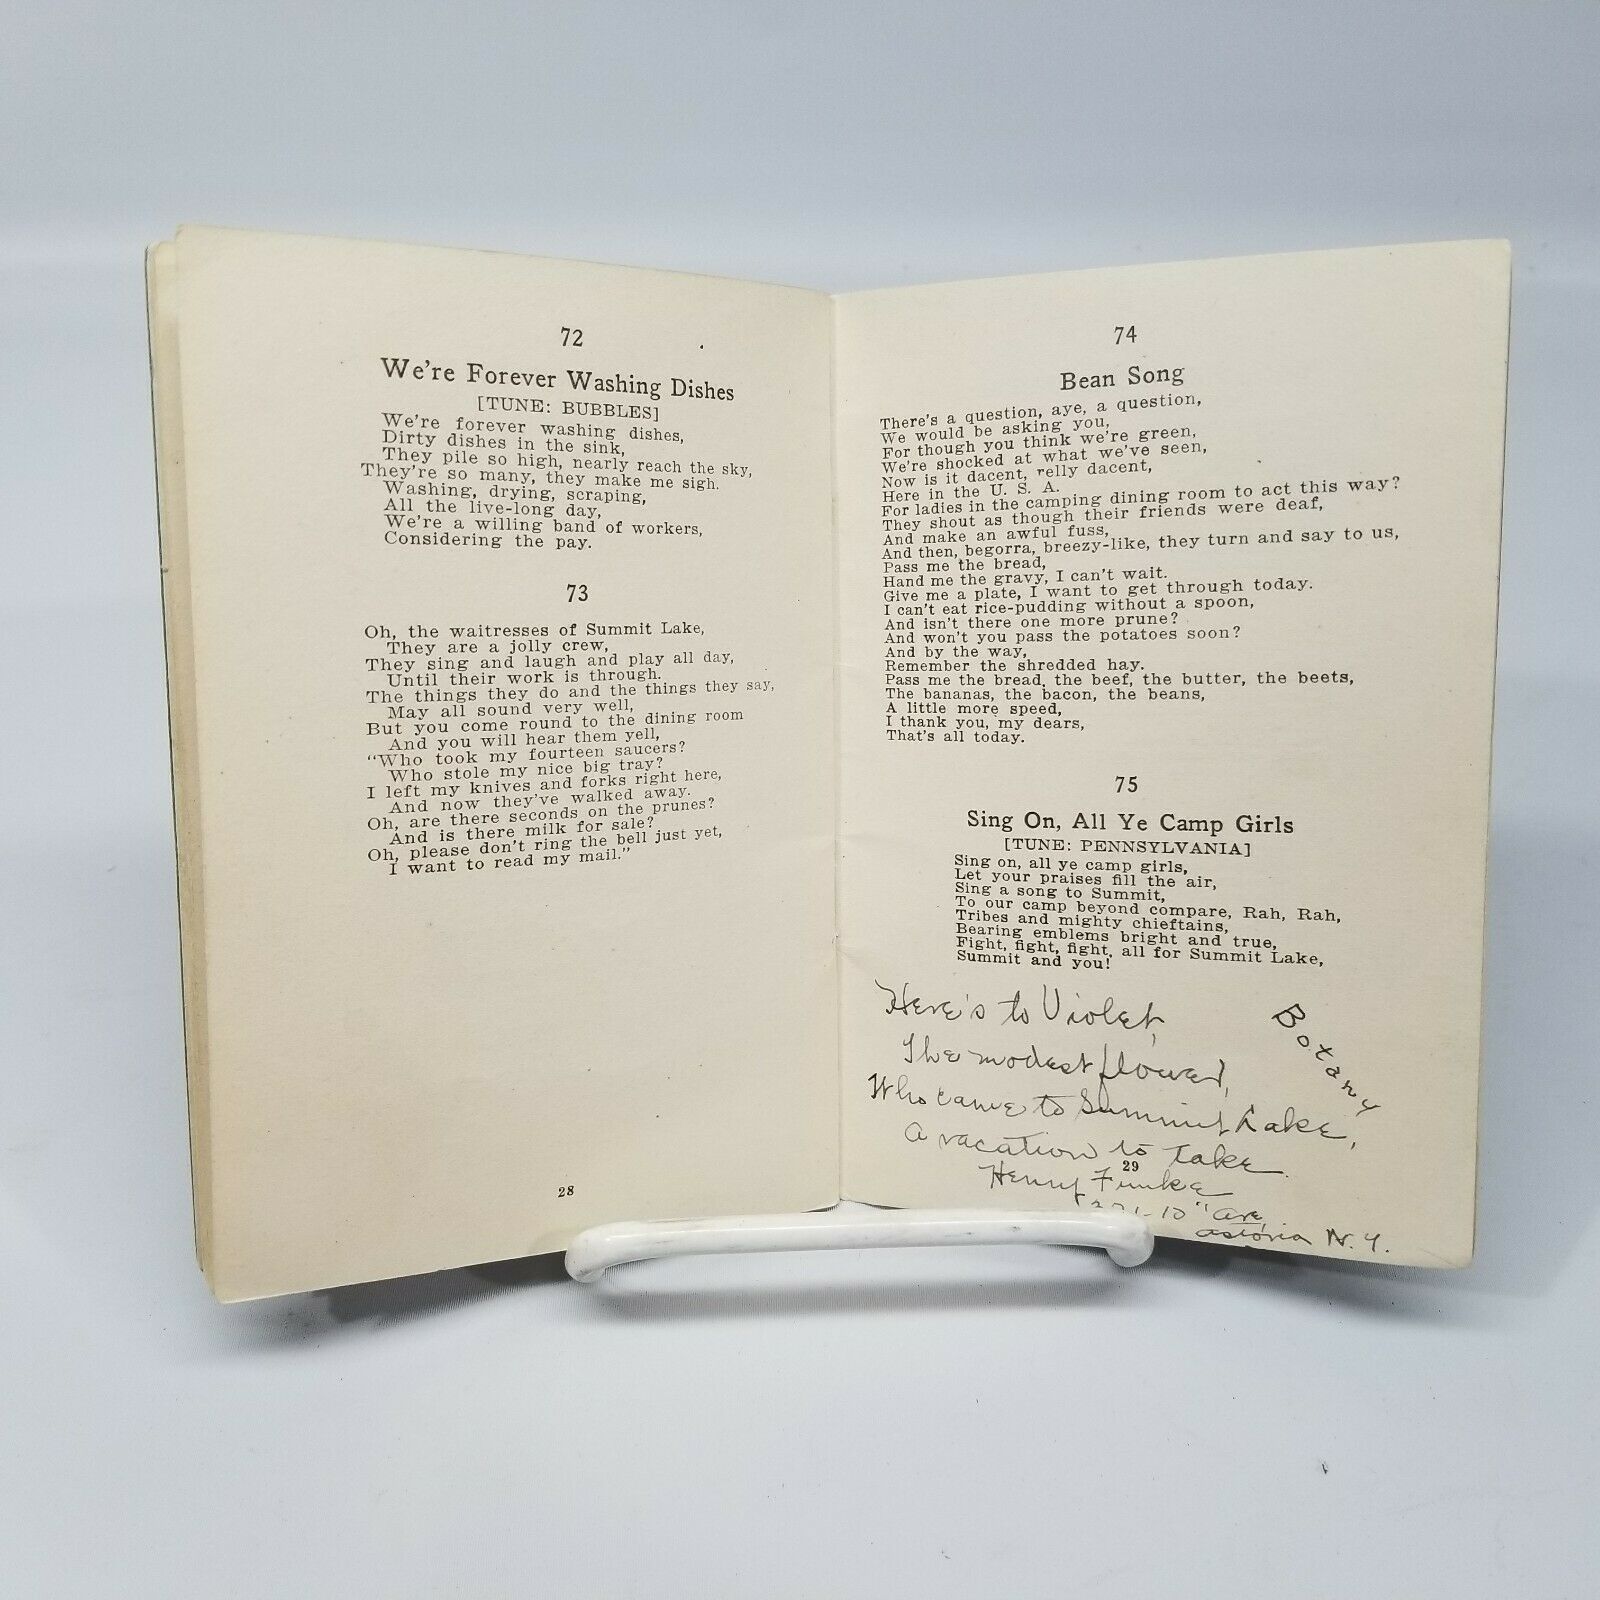 72
We're Forever Washing Dishes
[TUNE: BUBBLES]
We're forever washing dishes,
Dirty dishes in the sink,
They pile so high, nearly reach the sky,
They're so many, they make me sigh.
Washing, drying, scraping,
All the live-long day,
We're a willing band of workers,
Considering the pay.
73
Oh, the waitresses of Summit Lake,
They are a jolly crew,
They sing and laugh and play all day,
Until their work is through.
The things they do and the things they say,
May all sound very well,
But you come round to the dining room
And you will hear them yell,
"Who took my fourteen saucers?
Who stole my nice big tray?
I left my knives and forks right here,
And now they've walked away.
Oh, are there seconds on the prunes?
And is there milk for sale?
Oh, please don't ring the bell just yet,
I want to read my mail."
28
74
Bean Song
There's a question, aye, a question,
We would be asking you,
For though you think we're green,
We're shocked at what we've seen,
Now is it dacent, relly dacent,
Here in the U. S. A.
For ladies in the camping dining room to act this way?
They shout as though their friends were deaf,
And make an awful fuss,
And then, begorra, breezy-like, they turn and say to us,
Pass me the bread,
Hand me the gravy, I can't wait.
Give me a plate, I want to get through today.
I can't eat rice-pudding without a spoon,
And isn't there one more prune?
And won't you pass the potatoes soon?
And by the way,
Remember the shredded hay.
Pass me the bread, the beef, the butter, the beets,
The bananas, the bacon, the beans,
A little more speed,
I thank you, my dears,
That's all today.
75
Sing On, All Ye Camp Girls
[TUNE: PENNSYLVANIA]
Sing on, all ye camp girls,
Let your praises fill the air,
Sing a song to Summit,
To our camp beyond compare, Rah, Rah,
Tribes and mighty chieftains,
Bearing emblems bright and true,
Fight, fight, fight, all for Summit Lake,
Summit and you!
Here's to Violet,
The modest flower,
Who came to Summit Lake,
A vacation to take.
Botany
29
Henry Funke
10" Ave,
Astoria N.Y.